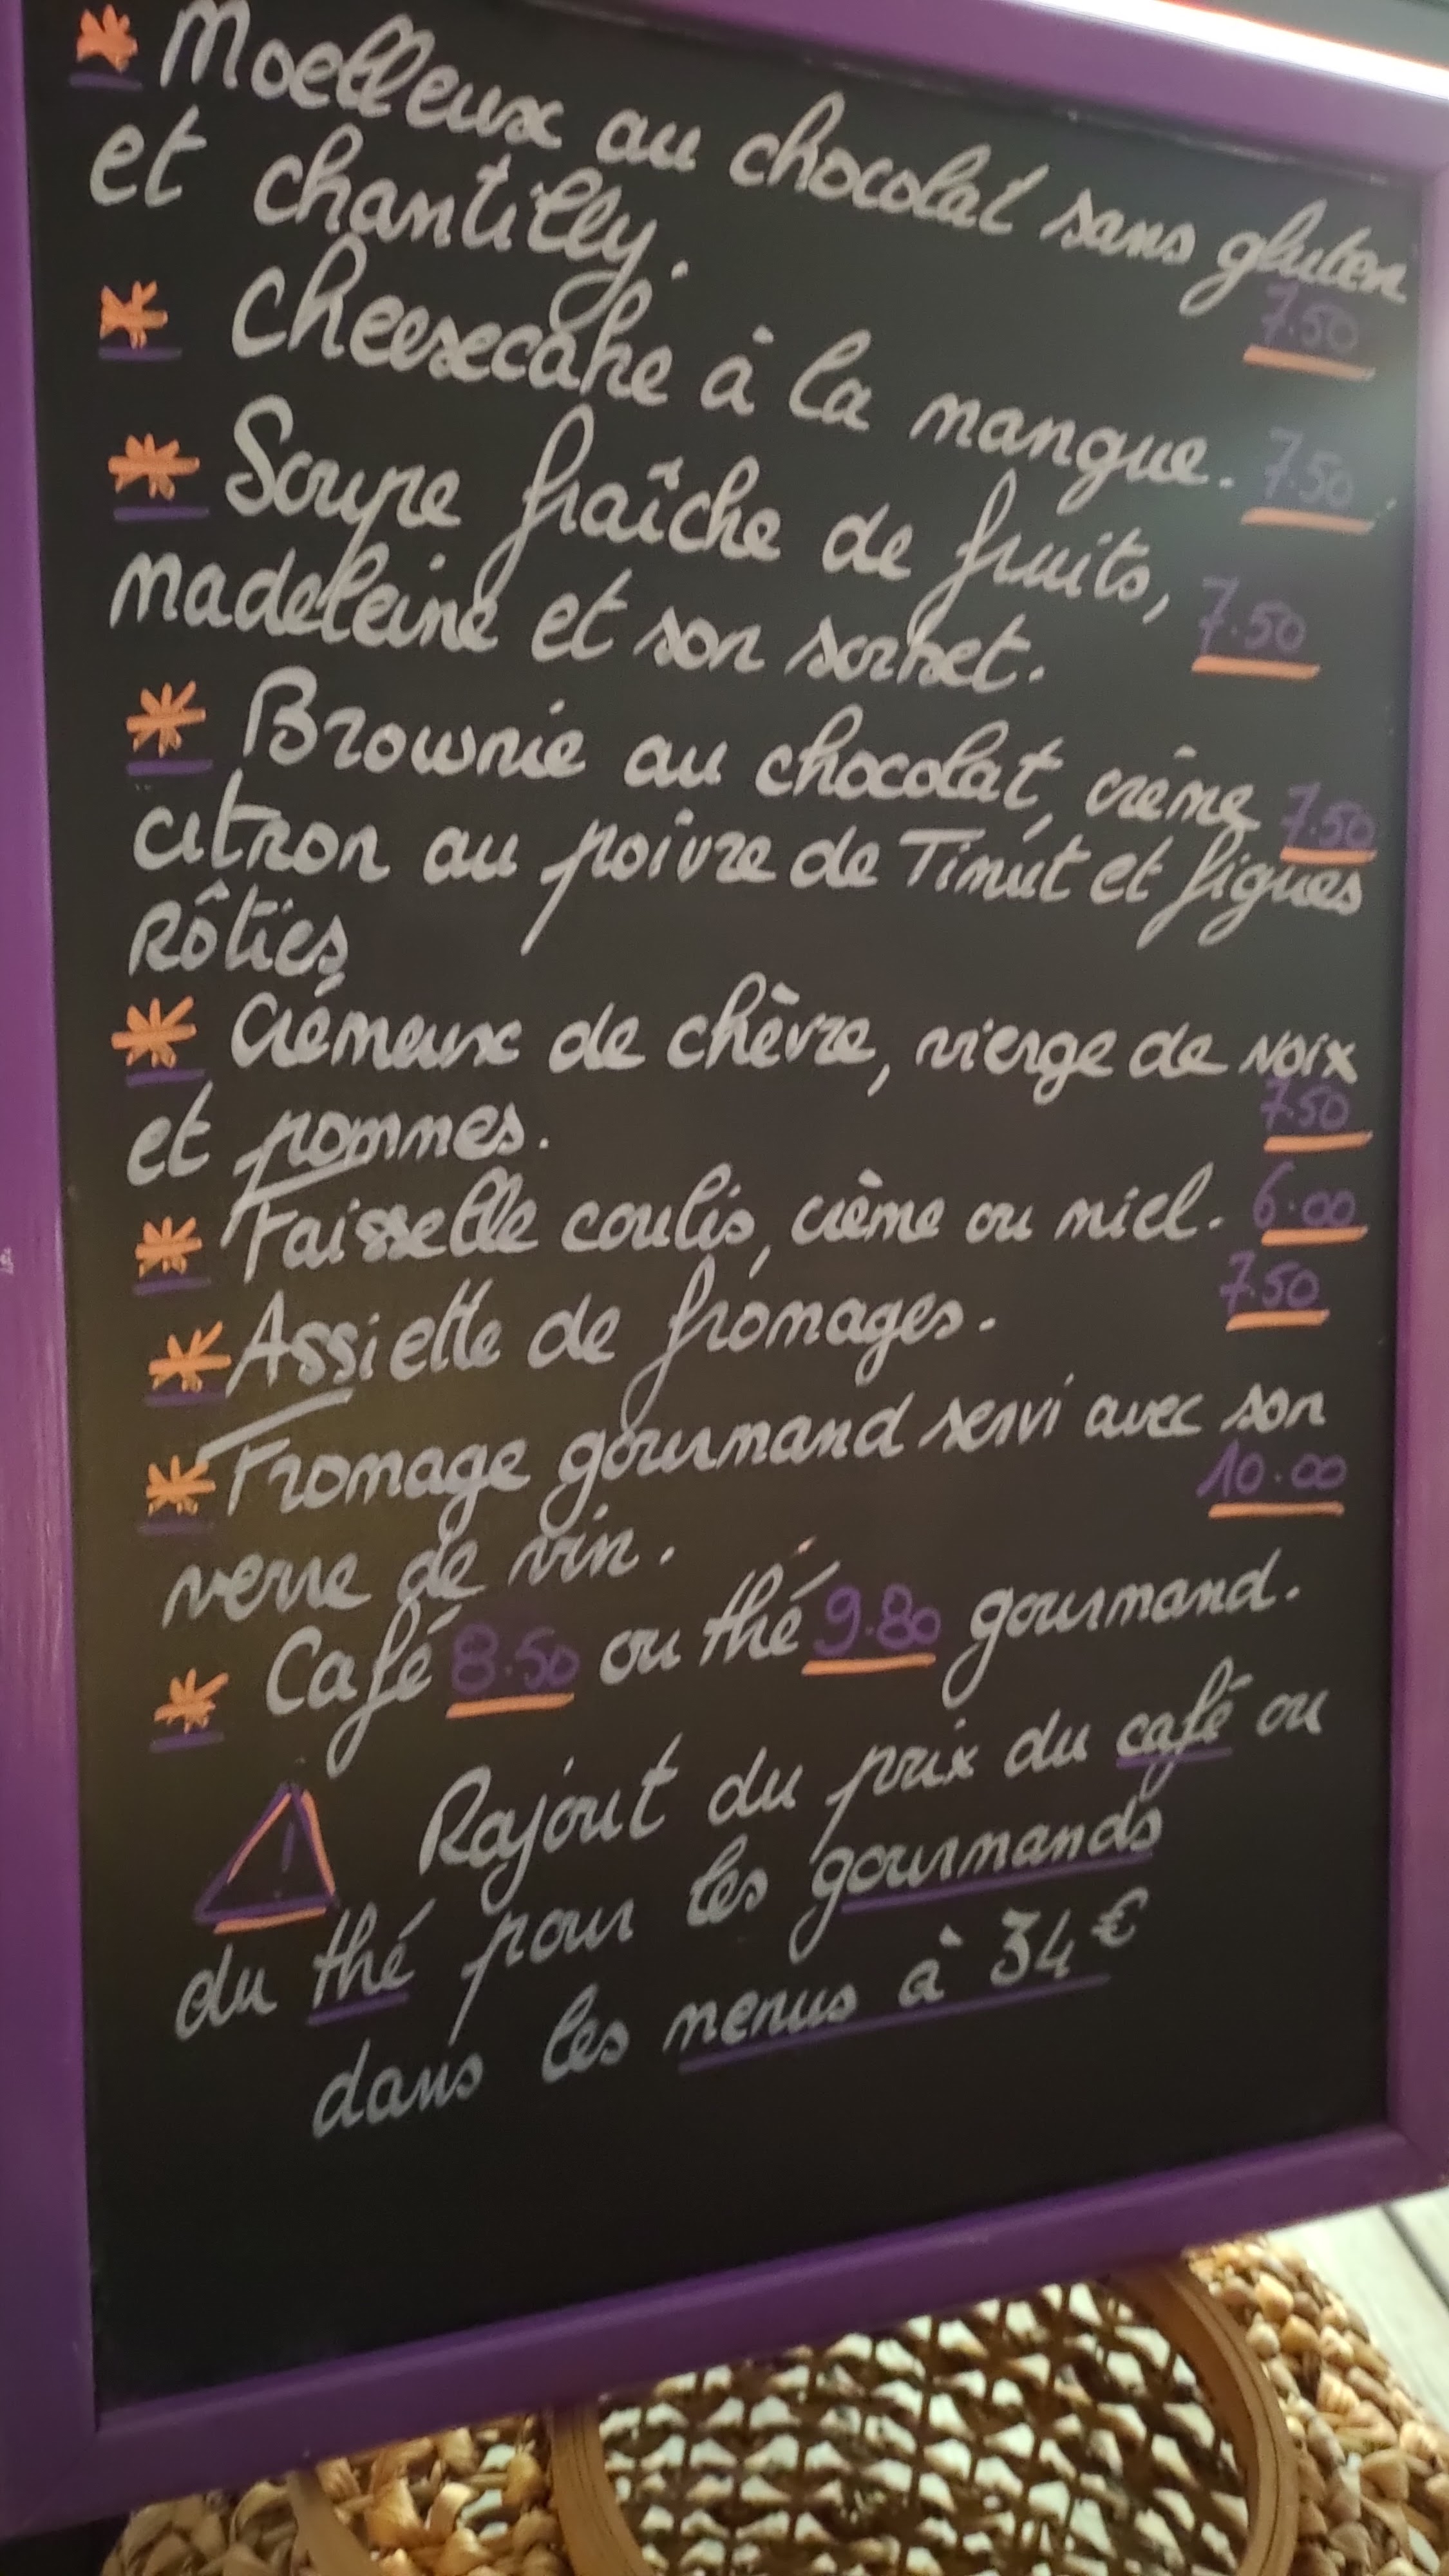 * Moelleux au chocolat sans gluten
et chantilly. 7.50
* Cheesecake à la mangue. 7.50
* Soupe fraîche de fruits,
madeleine et son sorbet. 7.50
* Brownie au chocolat, crème 7.50
citron au poivre de Timut et figues
Rôties
* Crémeux de chèvre, vierge de noix
et pommes. 7.50
* Faisselle coulis, crème ou miel. 6.00
* Assiette de fromages. 7.50
* Fromage gourmand servi avec son
verre de vin. 10.00
* Café 8.50 ou thé 9.80 gourmand.
! Rajout du prix du café ou
du thé pour les gourmands
dans les menus à 34€